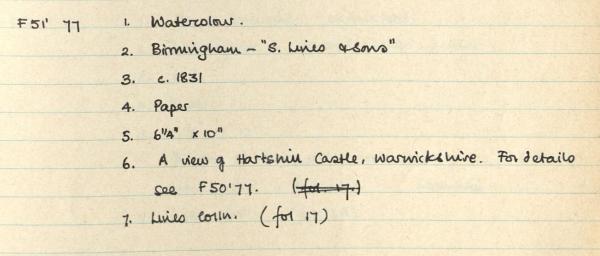 F51' 77 1. Watercolour.
2. Birmingham - "S. Lines & Sons"
3. c. 1831
4. Paper
5. 6¼" x 10"
6. A view of Hartshill Castle, Warwickshire. For details
see F50'77. (fol. 17.)
7. Lines colln. (fol 17)